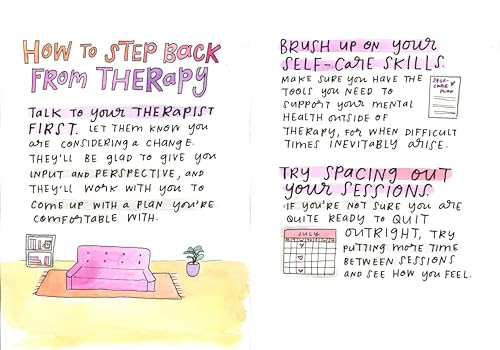 HOW TO STEP BACK
FROM THERAPY
TALK TO YOUR THERAPIST
FIRST. LET THEM KNOW YOU
ARE CONSIDERING A CHANGE.
THEY'LL BE GLAD TO GIVE YOU
INPUT AND PERSPECTIVE, AND
THEY'LL WORK WITH YOU TO
COME UP WITH A PLAN YOU'RE
COMFORTABLE WITH.
BRUSH UP ON YOUR
SELF-CARE SKILLS.
MAKE SURE YOU HAVE THE
TOOLS YOU NEED TO
SUPPORT YOUR MENTAL
HEALTH OUTSIDE OF
THERAPY, FOR WHEN DIFFICULT
TIMES INEVITABLY ARISE.
SELF-
CARE
PLAN
TRY SPACING OUT
YOUR SESSIONS.
IF YOU'RE NOT SURE YOU ARE
QUITE READY TO QUIT
OUTRIGHT, TRY
PUTTING MORE TIME
BETWEEN SESSIONS
AND SEE HOW YOU FEEL.
JULY